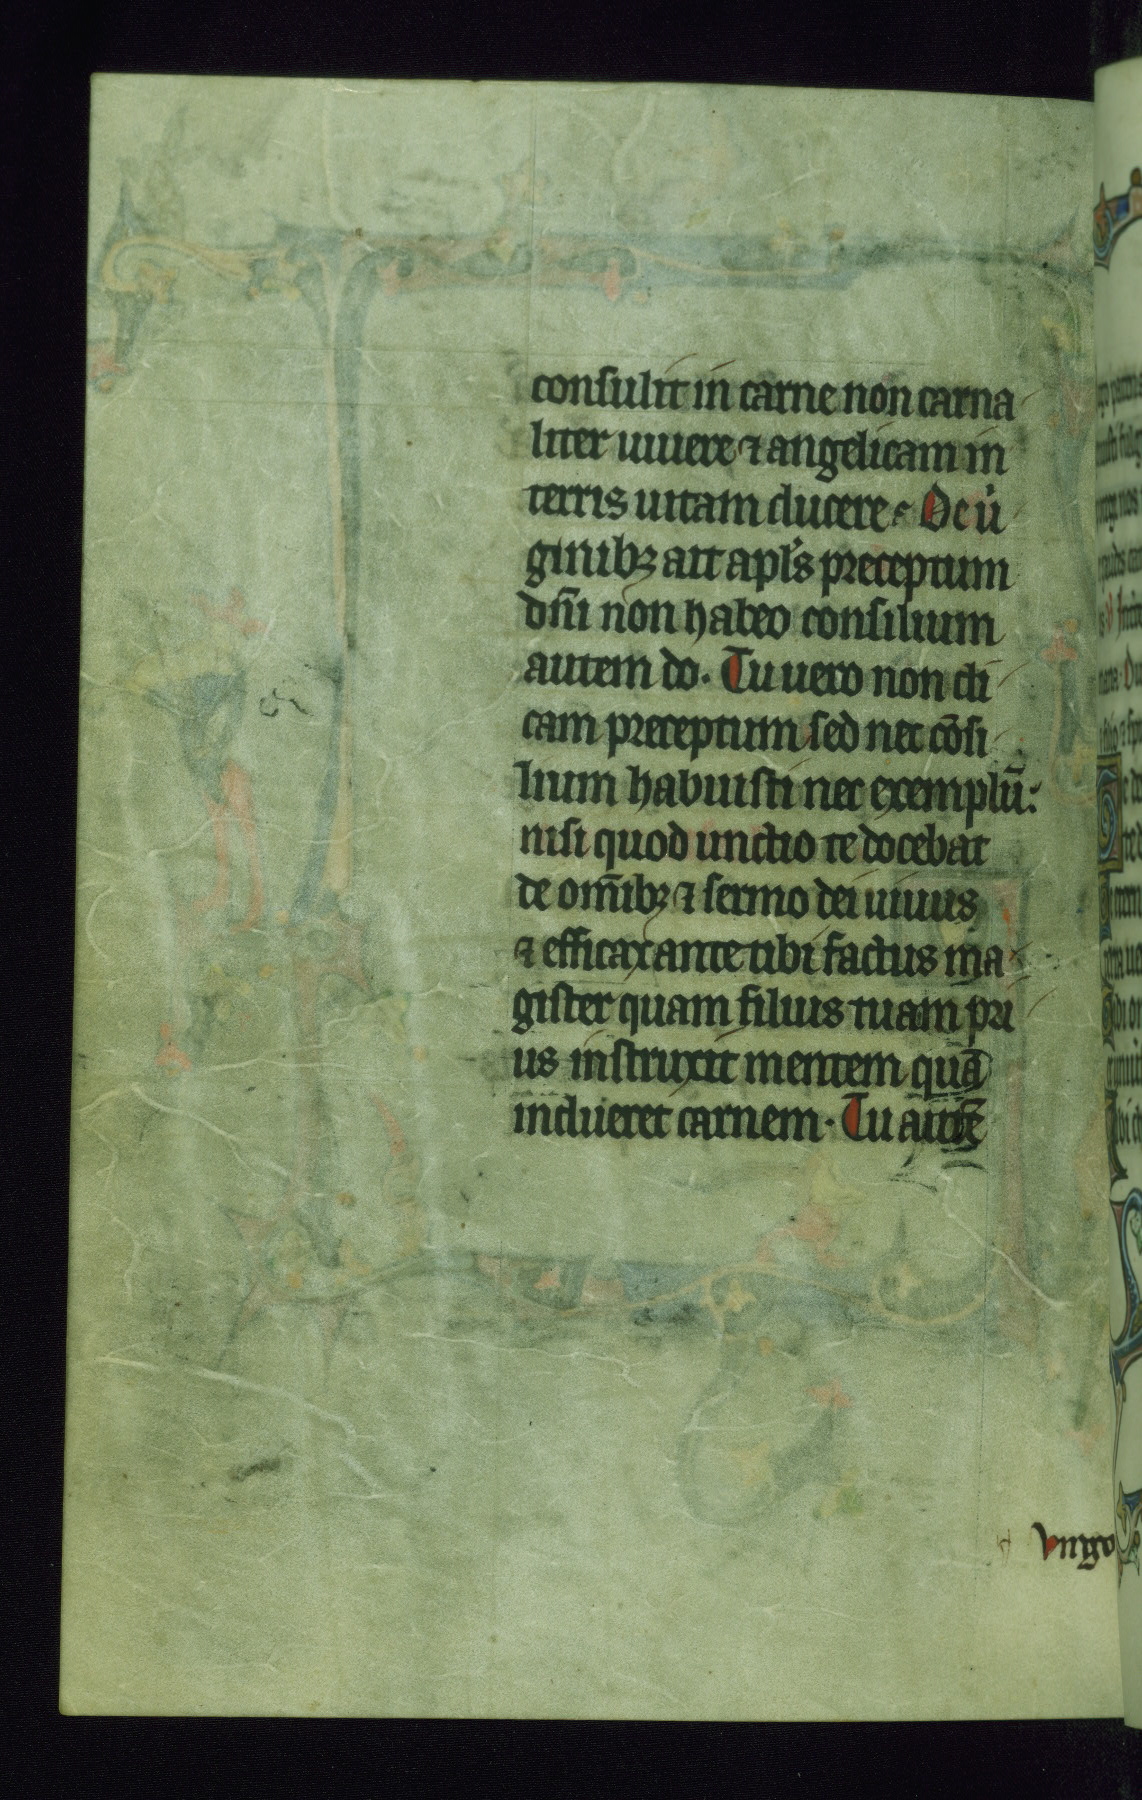 consulit in carne non carna
liter uiuere ⁊ angelicam in
terris uitam ducere. De uͥ
ginibꝫ ait apl̓s preceptum
dn̄i non habeo consilium
autem do. Tu uero non di
cam preceptum sed nec cōsi
lium habuisti nec exemplū:
nisi quod unctio te docebat
de om̄ibꝫ ⁊ sermo dei uiuus
⁊ efficax ante tibi factus ma
gister quam filius tuam pri
us instruxit mentem quā
indueret carnem. Tu autē
Virgo